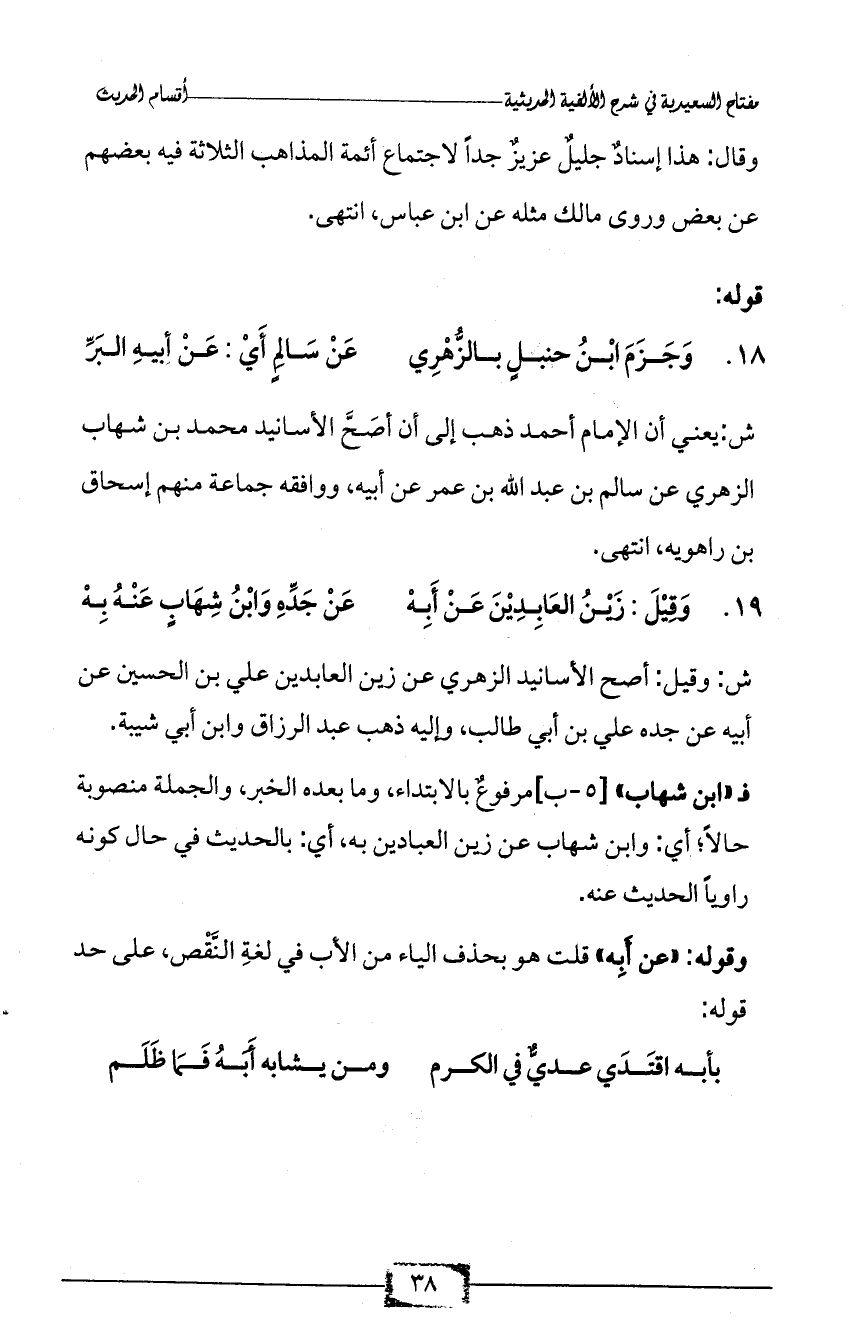 مفتاح السعيدية في شرح الألفية الحديثية ــــــــــــ أقسام الحديث
وقال: هذا إسنادٌ جليلٌ عزيزٌ جداً لاجتماع أئمة المذاهب الثلاثة فيه بعضهم
عن بعض وروى مالك مثله عن ابن عباس، انتهى.
قوله:
١٨. وَجَزَمَ ابْنُ حنبلٍ بالزُّهْرِي عَنْ سَالِمٍ أَيْ : عَنْ أبيهِ البَرِّ
ش:يعني أن الإمام أحمد ذهب إلى أن أصَحَّ الأسانيد محمد بن شهاب
الزهري عن سالم بن عبد الله بن عمر عن أبيه، ووافقه جماعة منهم إسحاق
بن راهويه، انتهى.
١٩. وَقِيْلَ : زَيْنُ العَابِدِيْنَ عَنْ أَبِهْ عَنْ جَدِّهِ وَابْنُ شِهَابٍ عَنْهُ بِهْ
ش: وقيل: أصح الأسانيد الزهري عن زين العابدين علي بن الحسين عن
أبيه عن جده علي بن أبي طالب، وإليه ذهب عبد الرزاق وابن أبي شيبة.
فـ «ابن شهاب» [٥-ب]مرفوعٌ بالابتداء، وما بعده الخبر، والجملة منصوبة
حالاً؛ أي: وابن شهاب عن زين العبادين به، أي: بالحديث في حال كونه
راوياً الحديث عنه.
وقوله: «عن أَبِه» قلت هو بحذف الياء من الأب في لغةِ النَّقْص، على حد
قوله:
بأبه اقتَدَي عديٌّ في الكرم ومن يشابه أَبَهُ فَمَا ظَلَم
٣٨